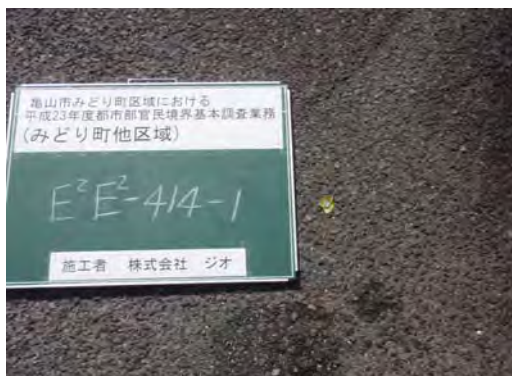 亀山市みどり町区域における
平成23年度都市部官民境界基本調査業務
(みどり町他区域)
E²E²-414-1
施工者 株式会社 ジオ